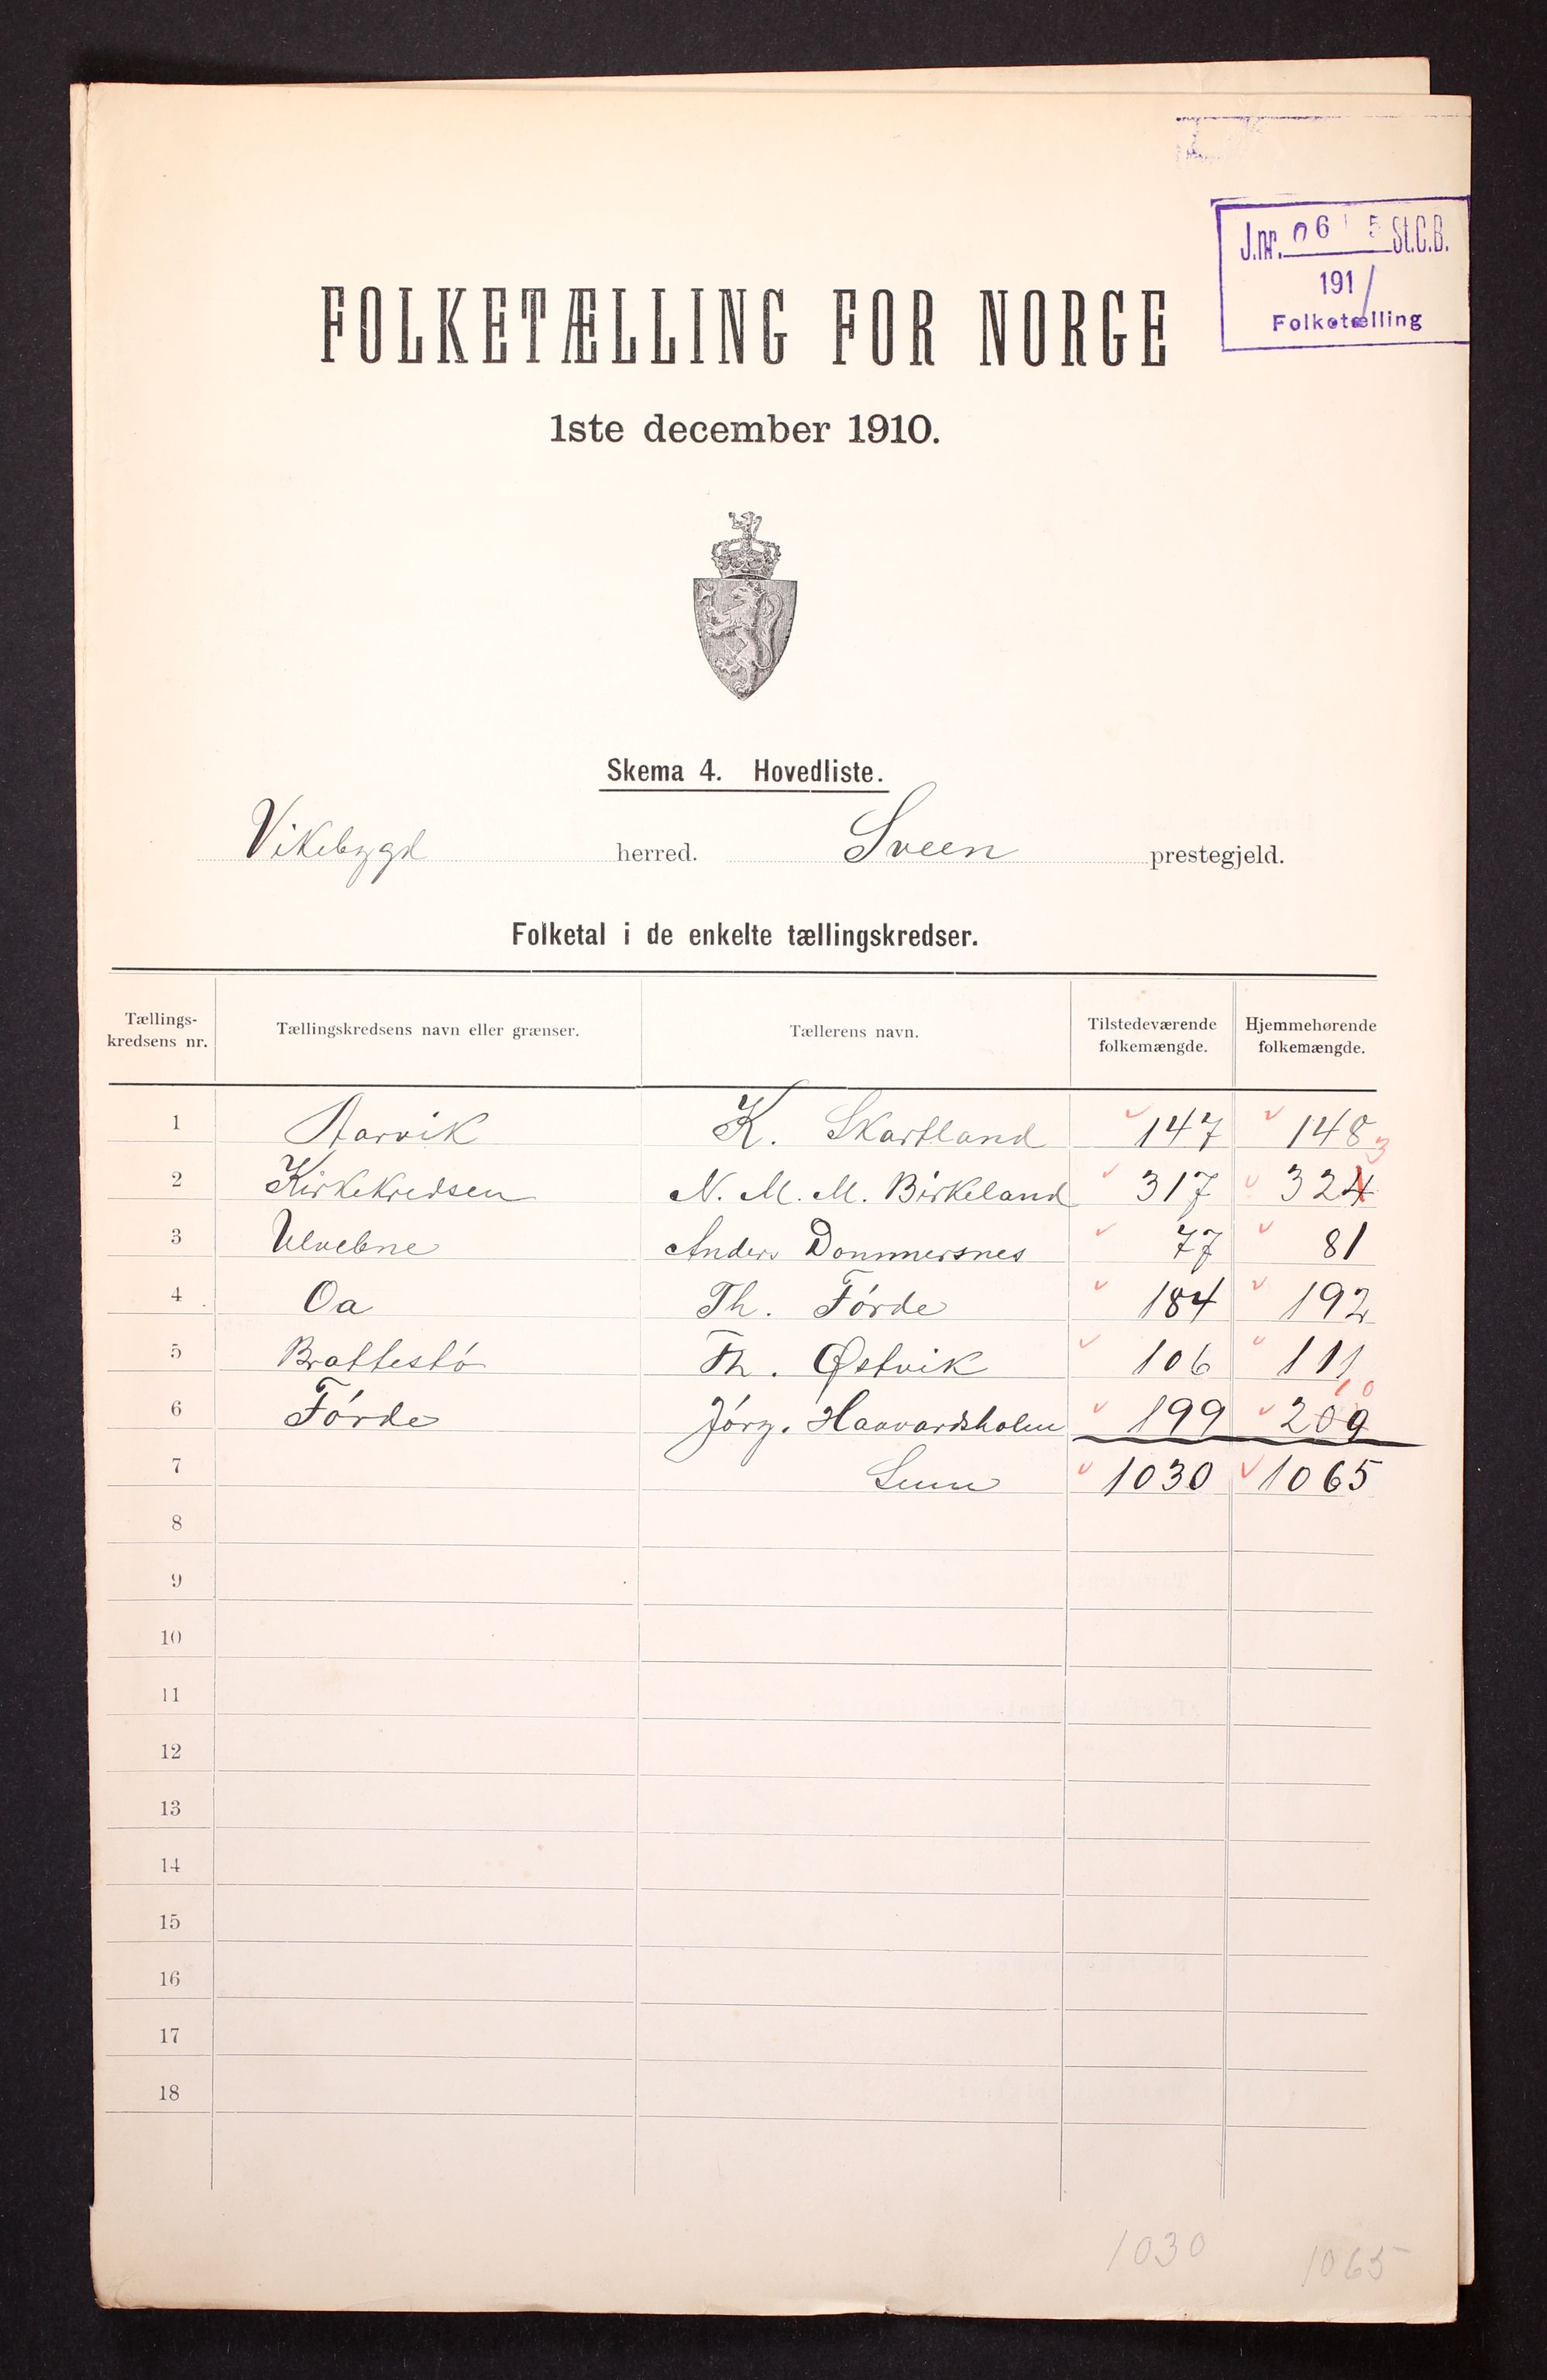 J.nr. 06 5 St.C.B.
191/
Folketælling
FOLKETÆLLING FOR NORGE
1ste december 1910.
Skema 4. Hovedliste.
Vikebygd herred. Sveen prestegjeld.
Folketal i de enkelte tællingskredser.
Tællings-kredsens nr. Tællingskredsens navn eller grænser. Tællerens navn. Tilstedeværende folkemængde. Hjemmehørende folkemængde.
1 Aarvik K. Skartland 147 148
3
2 Kirkekredsen N. M. M. Birkeland 317 324
3 Ulvebne Anders Dommersnes 77 81
4 Oa Th. Førde 184 192
5 Brattestø Th. Østvik 106 111
10
6 Førde Jørg. Haavardsholm 199 209
7 Sum 1030 1065
8
9
10
11
12
13
14
15
16
17
18
1030 1065